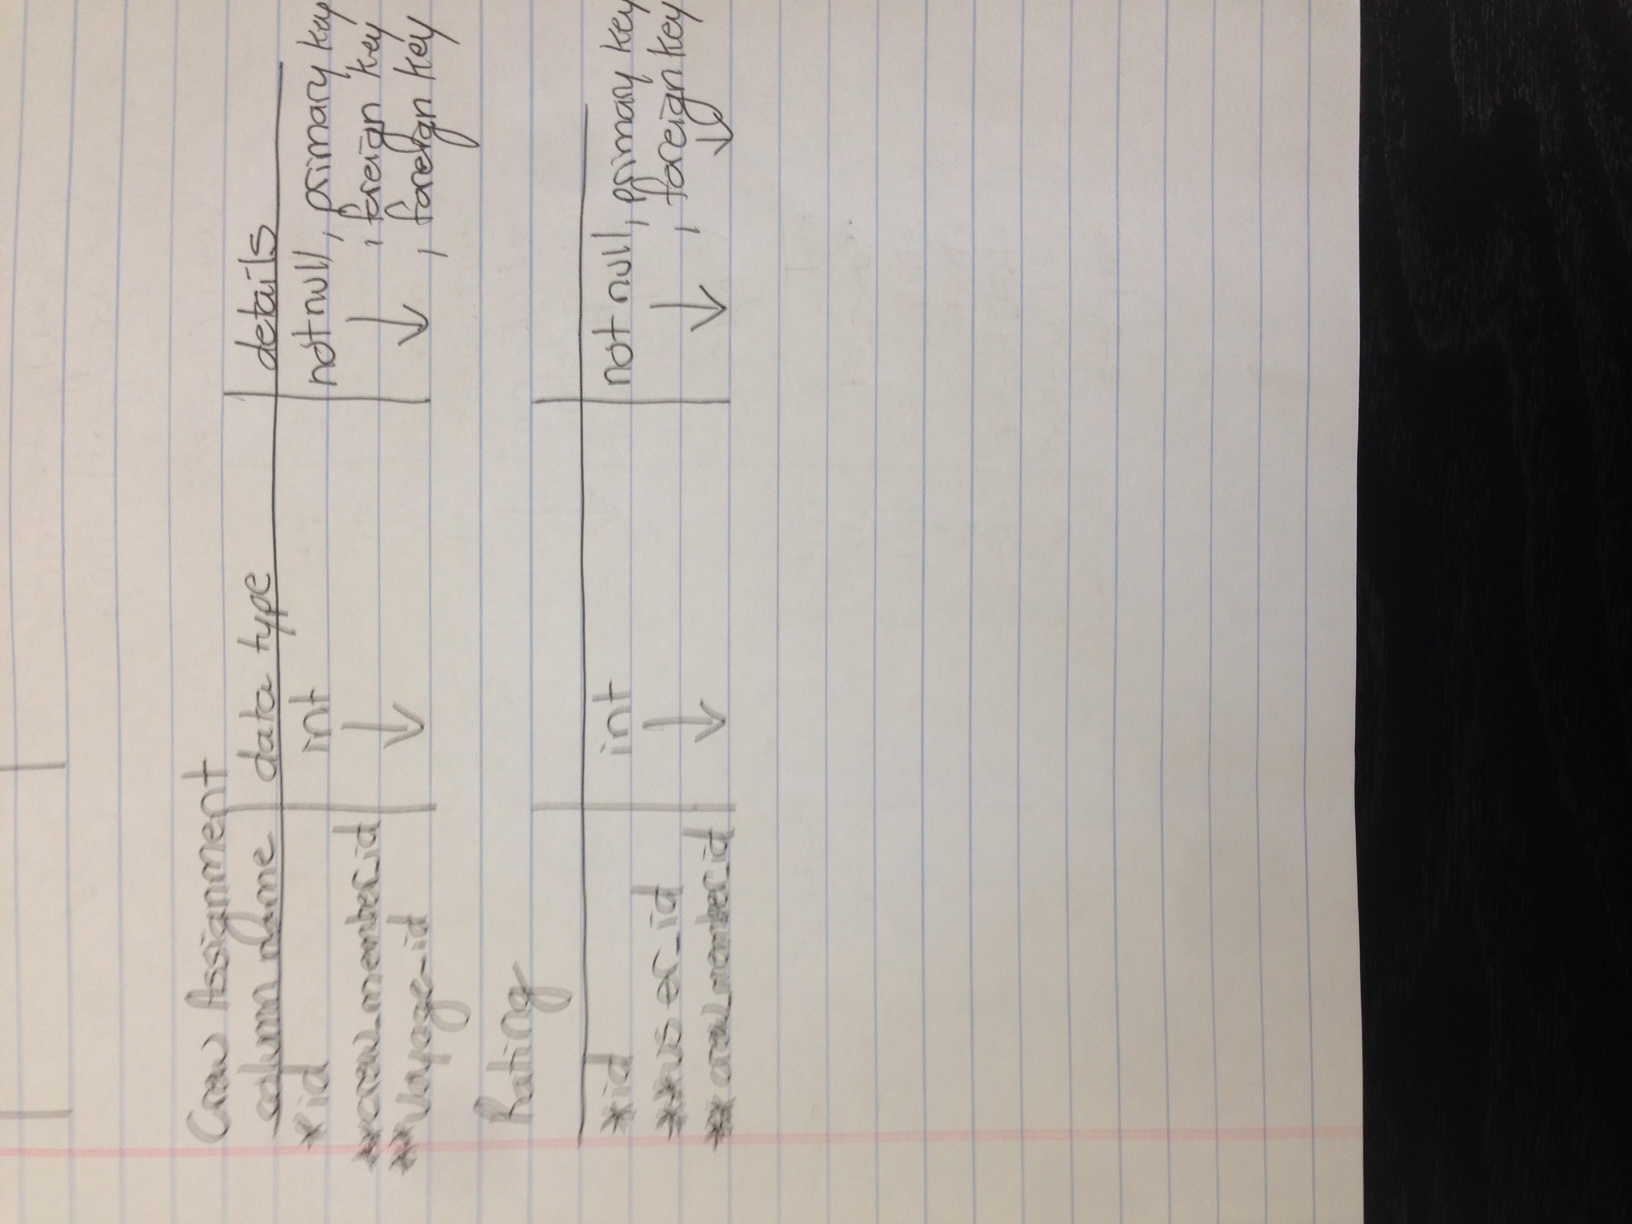 Crew Assignment
column name data type details
*id int not null, primary key
**crew_member_id , foreign key
**voyage_id , foreign key
Rating
*id int not null, primary key
**user_id , foreign key
**crew_member_id